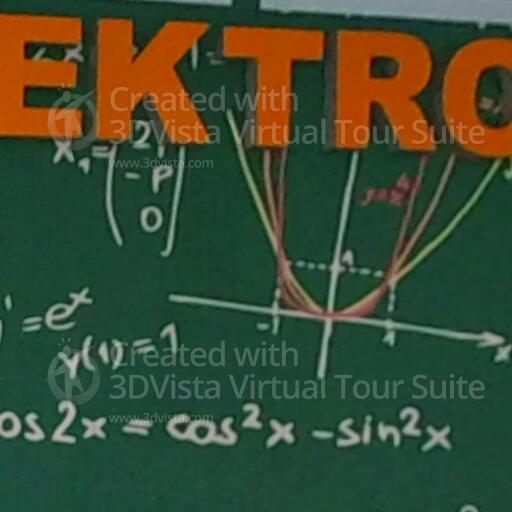 EKTRO
Created with
3DVista Virtual Tour Suite
www.3dvista.com
x₁=
2
-P
0
1
-1
1
x
=eˣ
y(1)=1
Created with
3DVista Virtual Tour Suite
www.3dvista.com
os2x = cos²x - sin²x